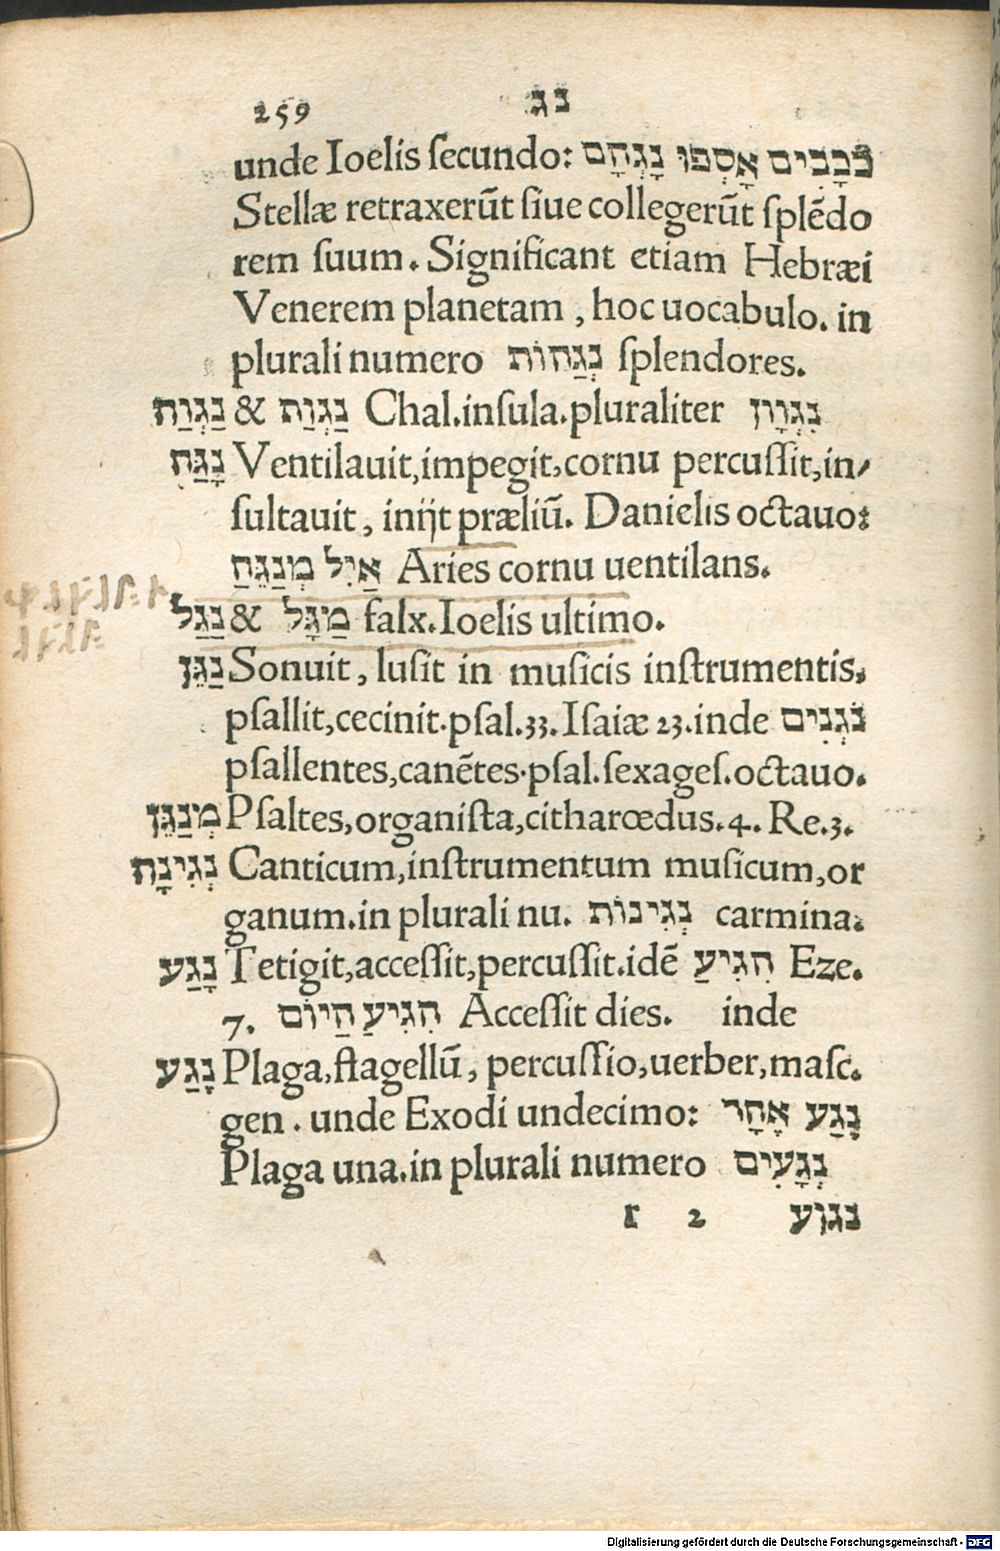 259 נג
unde Ioelis ſecundo: כֹּכָבִים אָסְפוּ נָגְהָם
Stellæ retraxerūt ſiue collegerūt ſplēdo
rem ſuum. Significant etiam Hebræi
Venerem planetam, hoc uocabulo. in
plurali numero נְגַהוֹת ſplendores.
נַגְוַה & נַגְוַת Chal.inſula.pluraliter נִגְוָון
נָגַח Ventilauit,impegit,cornu percuſſit,in/
ſultauit, inijt præliū. Danielis octauo:
אַיִל מְנַגֵּחַ Aries cornu uentilans.
נַגַל & מַגָּל falx.Ioelis ultimo.
נַגֵּן Sonuit, luſit in muſicis inſtrumentis,
pſallit,cecinit.pſal.33.Iſaiæ 23.inde נֹגְנִים
pſallentes,canētes.pſal.ſexageſ.octauo.
מְנַגֵּן Pſaltes,organiſta,citharœdus.4. Re.3.
נְגִינָה Canticum,inſtrumentum muſicum,or
ganum.in plurali nu. נְגִינוֹת carmina.
נָגַע Tetigit,acceſſit,percuſſit.idē הִגִיעַ Eze.
7. הִגִיעַ הַיוֹם Acceſſit dies. inde
נֶגַע Plaga,flagellū, percuſſio,uerber,maſc.
gen. unde Exodi undecimo: נֶגַע אֶחָר
Plaga una.in plurali numero נְגָעִים
r 2 נגוע
Digitalisierung gefördert durch die Deutsche Forschungsgemeinschaft - DFG